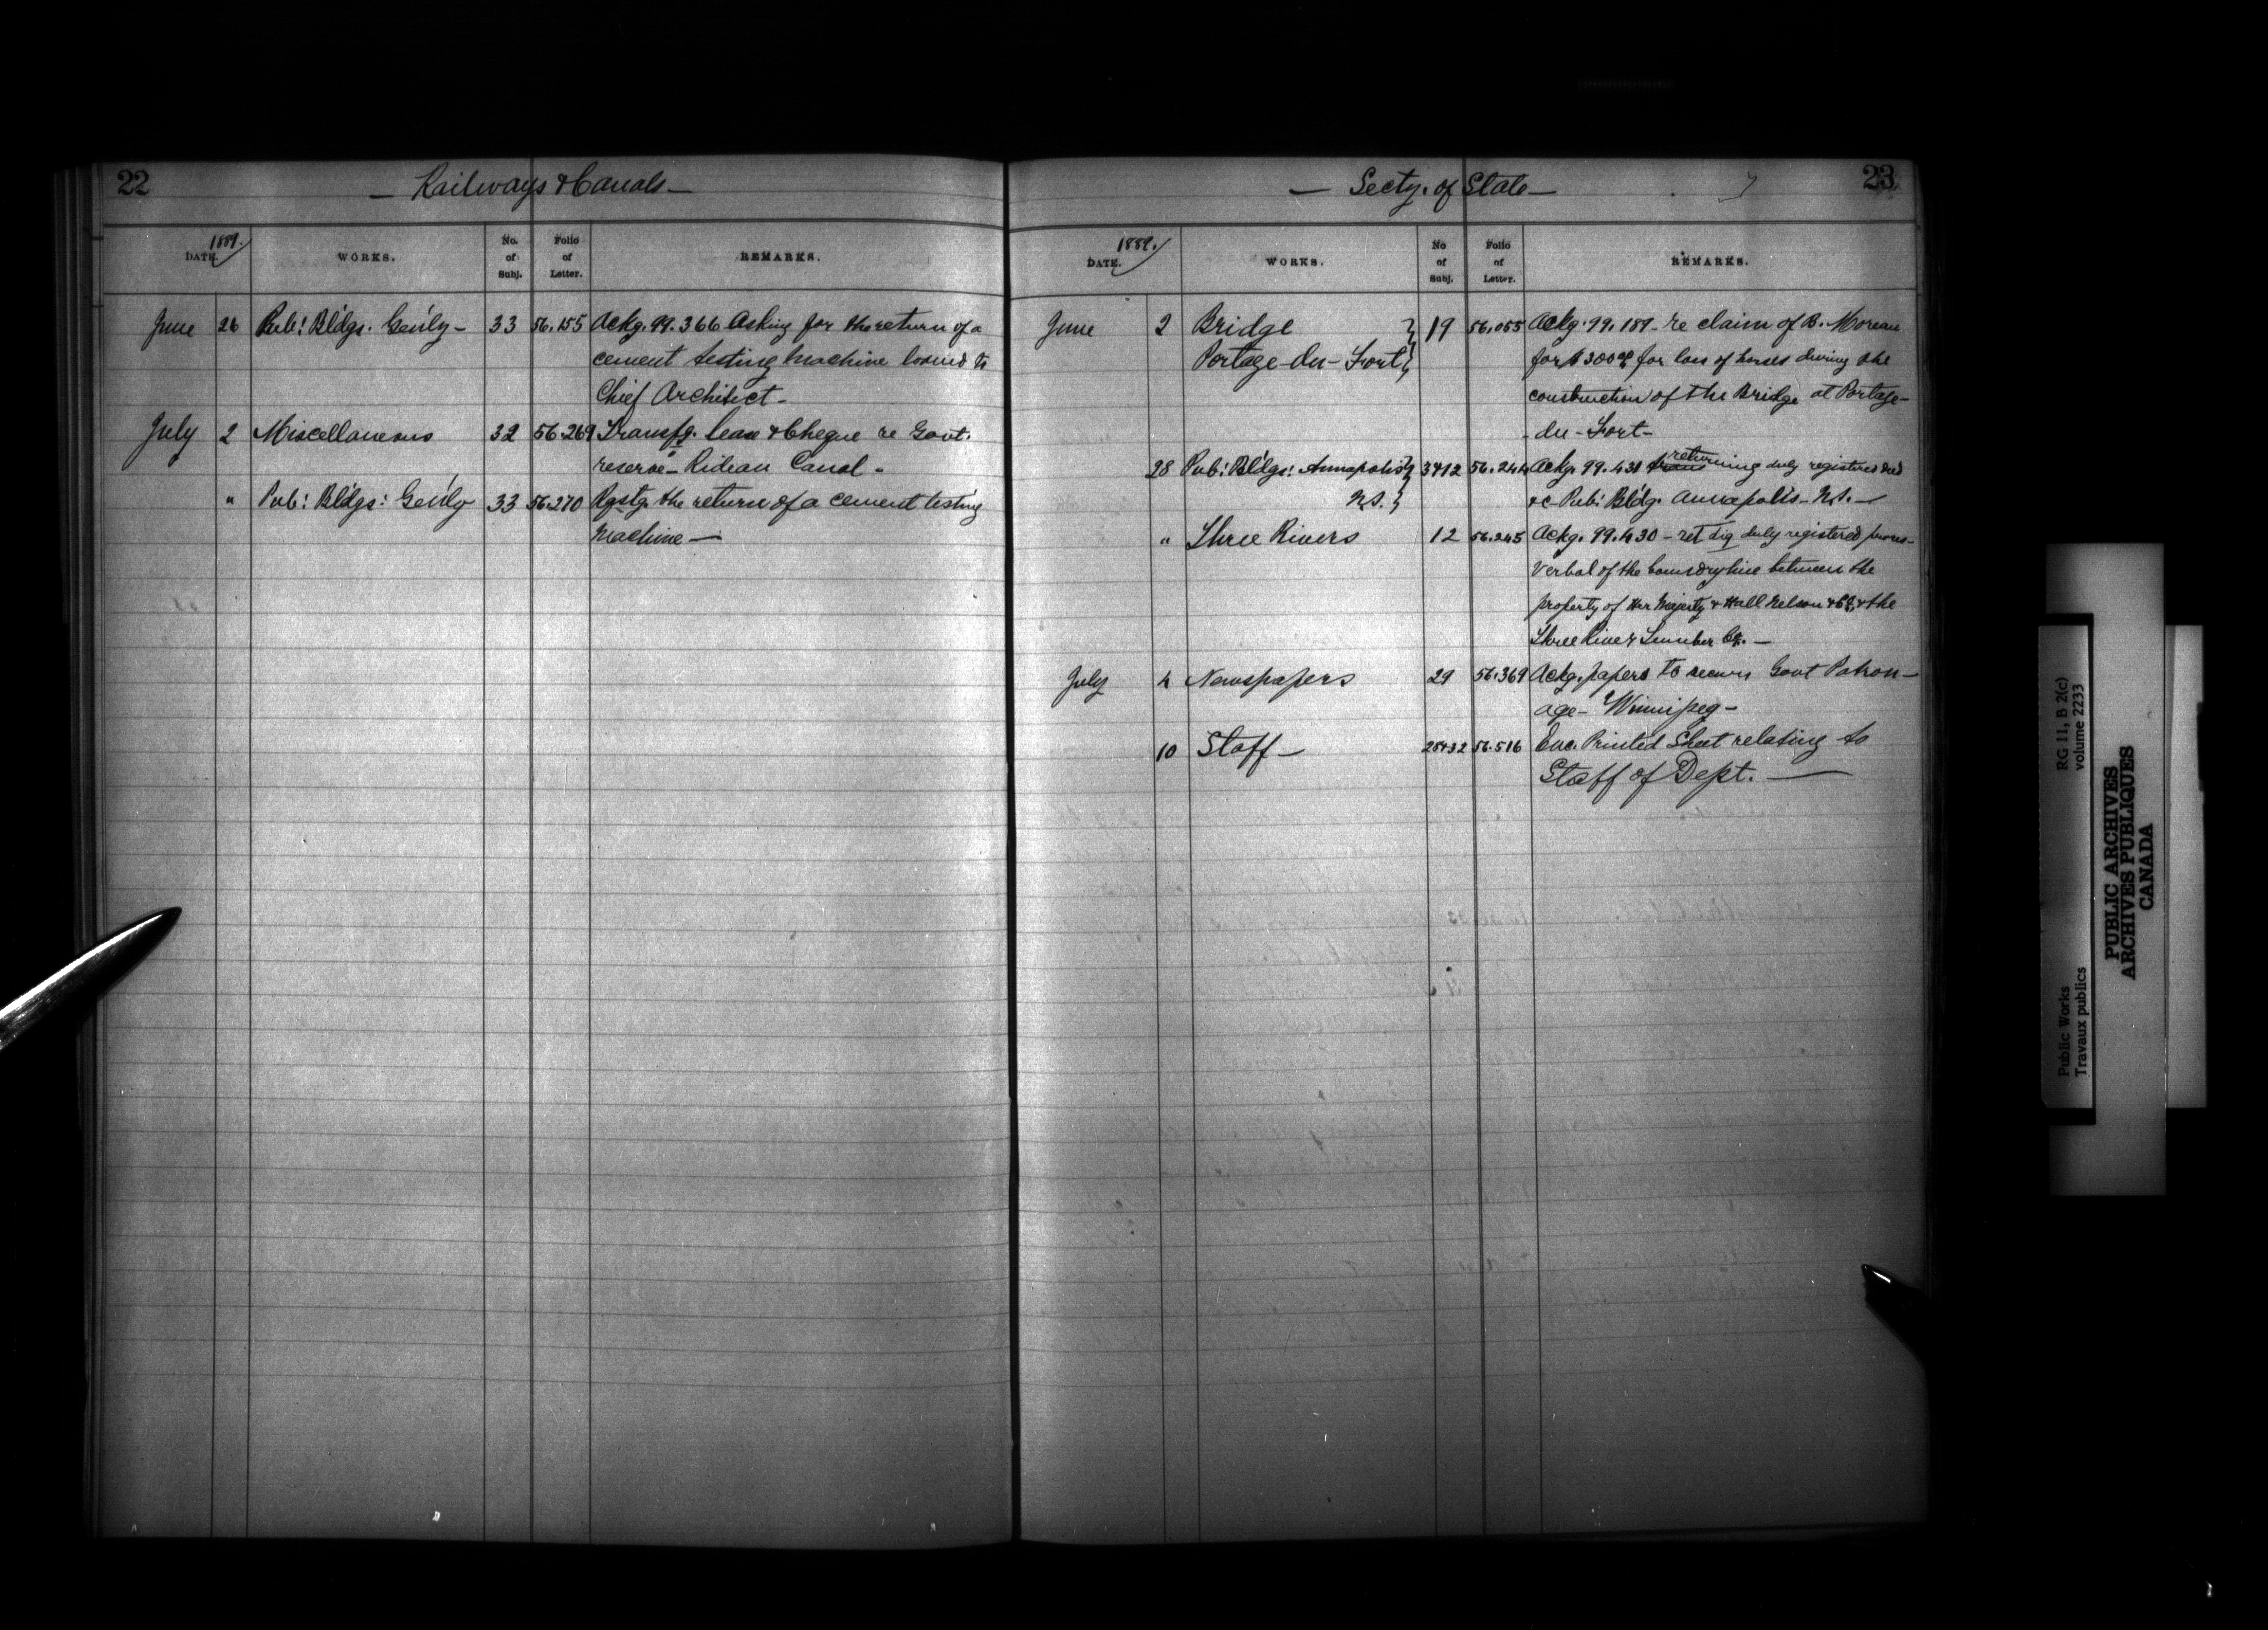 22
— Railways & Canals —
1889.
DATE.
WORKS.
No. of Subj.
Folio of Letter.
REMARKS.
June 26 Pub: Bldgs. Gen'ly - 33 56.155 Ackg. 99.366 Asking for the return of a
cement testing machine loaned to
Chief Architect -
July 2 Miscellaneous 32 56.269 Transfg. lease & Cheque re Govt.
reserve - Rideau Canal -
" Pub: Bldgs: Gen'ly 33 56.270 Rqstg. the return of a cement testing
Machine —
23
— Secty. of State —
1889.
DATE.
WORKS.
No of Subj.
Folio of Letter.
REMARKS.
June 2 Bridge } 19 56.055 Ackg. 99.189 - re claim of B. Moreau
Portage-du-Fort } for $300 for loss of horses during the
construction of the Bridge at Portage-
-du-Fort-
28 Pub: Bldgs: Annapolis } 3&12 56.244 Ackg. 99.431 returning duly registered deed
N.S. } &c Pub: Bldg. Annapolis - N.S. —
" Three Rivers 12 56.245 Ackg. 99.430 - duly registered
Verbal of the boundry line between the
property of Her Majesty & Hall Nelson & Co, & the
Three River Lumber Co. —
July 4 Newspapers 29 56.369 Ackg. papers to secure Govt Patron-
age - Winnipeg -
10 Staff — 28&32 56.516 Enc. Printed Sheet relating to
Staff of Dept. —
RG 11, B 2(c)
volume 2233
Public Works
Travaux publics
PUBLIC ARCHIVES
ARCHIVES PUBLIQUES
CANADA